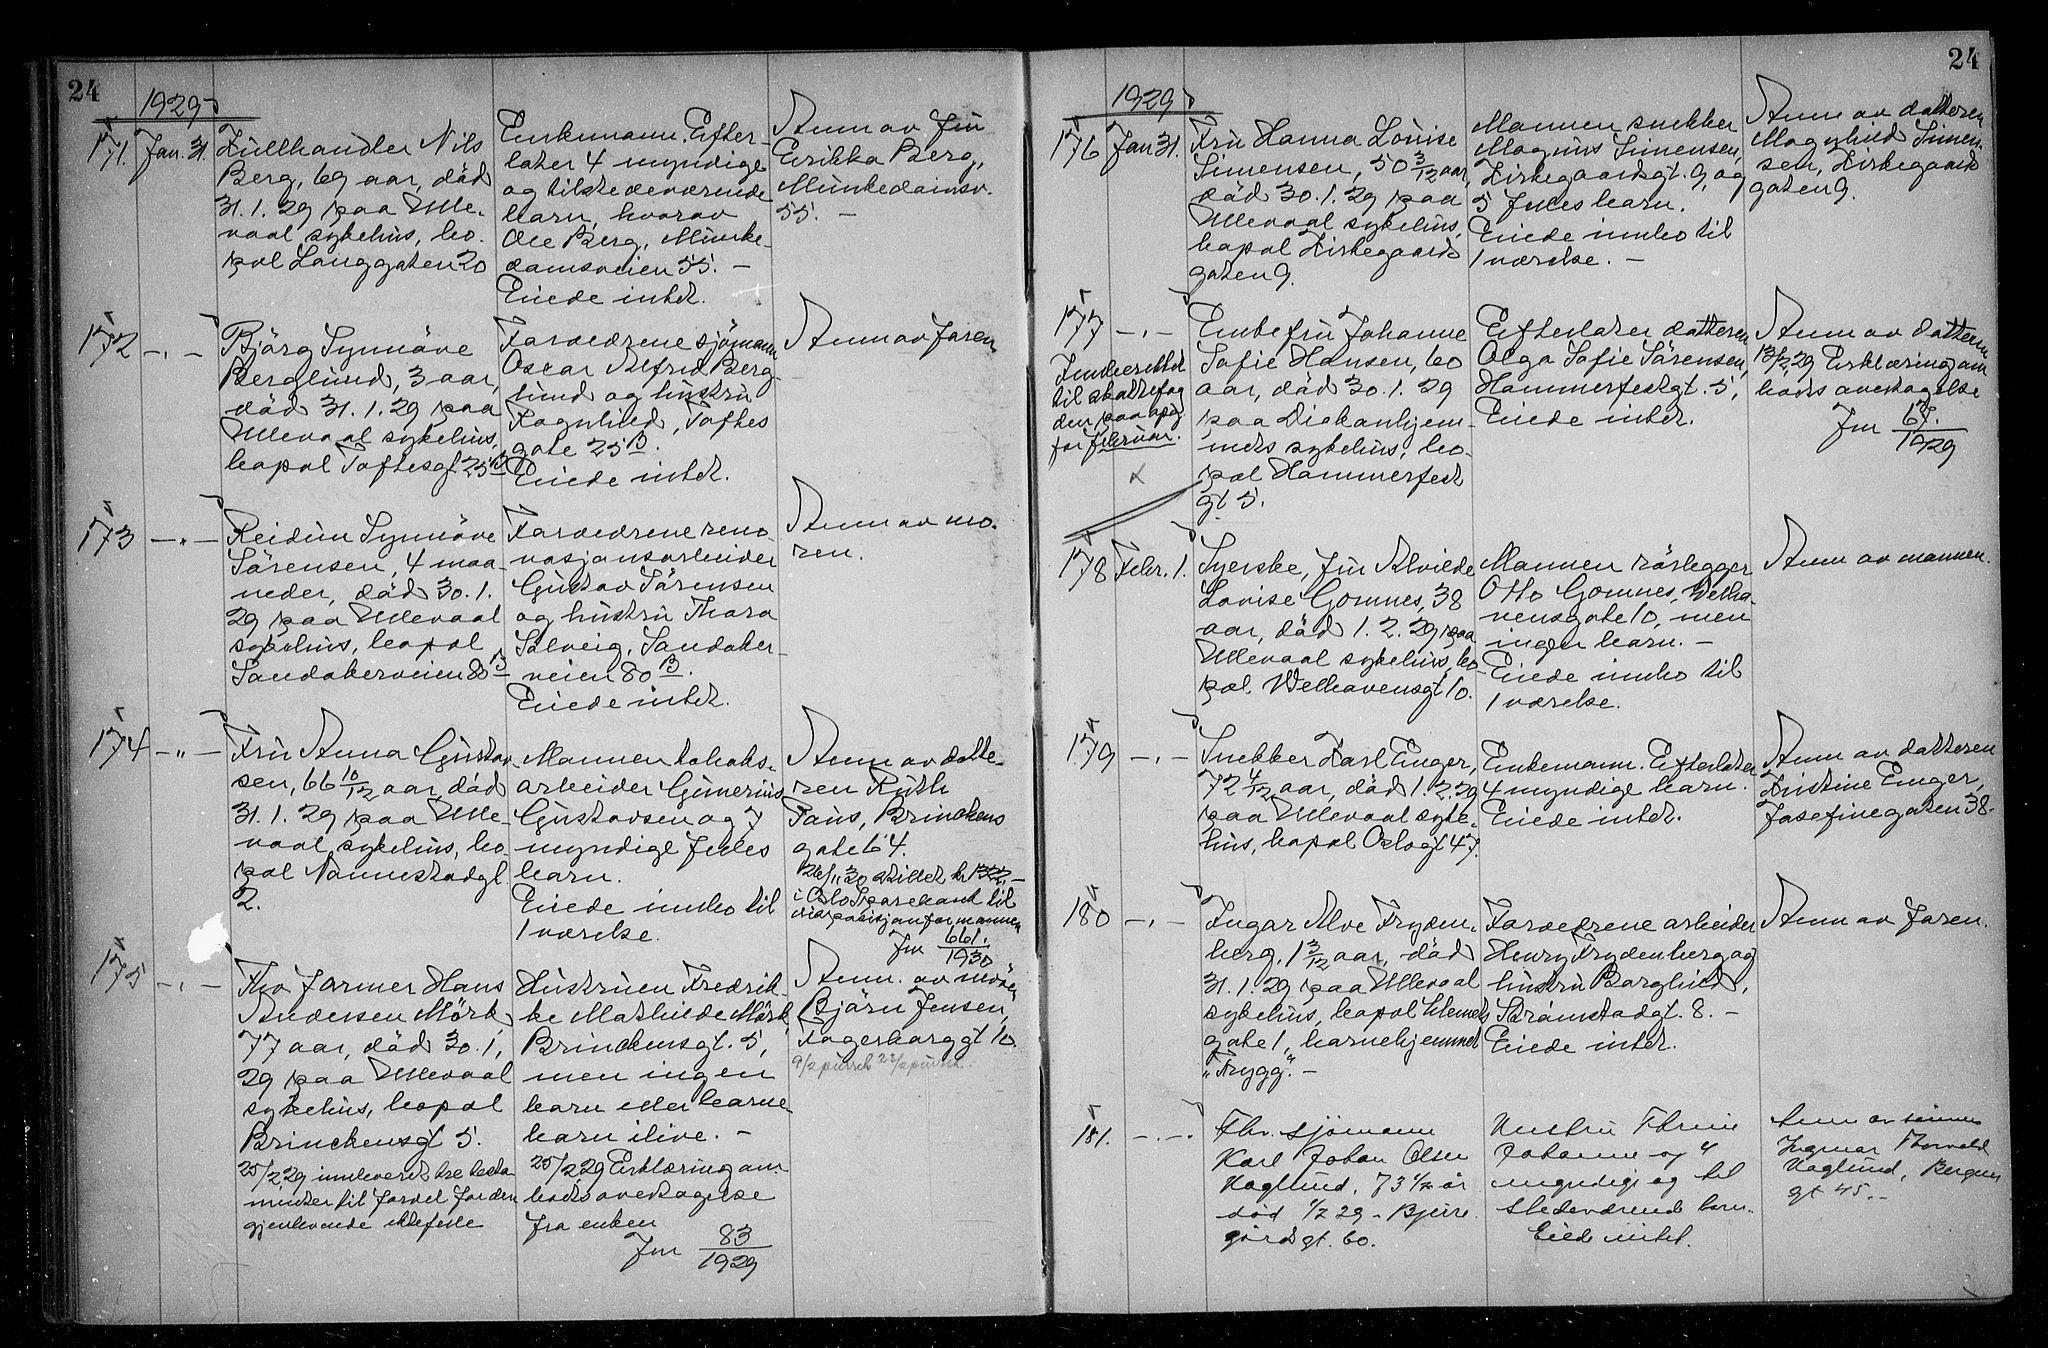 24
1929
171. Jan. 31.
Kullhandler Nils
Berg, 69 aar, död
31. 1. 29 paa Ulle-
vaal sykehus, bo-
pæl Langgaten 20
Enkemann. Efter-
later 4 myndige
og tilstedeværende
barn, hvorav
Ole Berg, Munke-
damsveien 55. –
Eiede intet.
Anm av fru
Erikka Berg,
Munkedamsv.
55. –
172 – " –
Bjärg Synnöve
Berglund, 3 aar,
död 31. 1. 29 paa
Ullevaal sykehus,
bopæl Toftesgt. 25 B
Forældrene sjömann
Oscar Alfred Berg-
lund og hustru
Ragnhild, Toftes
gate 25 B.
Eiede intet.
Anm av faren
173 – " –
Reidun Synnöve
Sörensen, 4 maa-
neder, död 30. 1.
29 paa Ullevaal
sykehus, bopæl
Sandakerveien 80 B
Forældrene reno-
vasjonsarbeider
Gustav Sörensen
og hustru Thora
Solveig, Sandaker-
veien 80 B.
Eiede intet.
Anm av mo-
ren.
174 – " –
Fru Anna Gustav
sen, 66 10/12 aar, död
31. 1. 29 paa Ulle-
vaal sykehus, bo-
pæl Nannestadgt.
2.
Mannen tobaks-
arbeider Gunerius
Gustavsen og 7
myndige felles
barn.
Eiede innbo til
1 værelse.
Anm av datte-
ren Ruth
Faus, Brinckens
gate 64.
26/11 30 utstilt kr 1322,–
i Oslo Sparebank til
disposisjon for mannen
Jnr 661./1930
175 – " –
Fhv farmer Hans
Andersen Mörk
77 aar, död 30. 1.
29 paa Ullevaal
sykehus, bopæl
Brinckensgt 5.
25/2 29 innleveret tre testa-
menter til fordel for den
gjenlevende ektefelle
Hustruen Fredrik-
ke Mathilde Mörk
Brinckensgt. 5,
men ingen
barn eller barne-
barn ilive. –
25/2 29 Erklæring om
bods overtagelse
fra enken
Jnr 83/1929
Anm. av
Björn Jensen,
Fagerborggt 10.
9/2 purret 22/2 purret
24
1929
176 Jan 31.
Fru Hanna Louise
Simensen, 50 3/12 aar,
död 30. 1. 29 paa
Ullevaal sykehus,
bopæl Kirkegaards
gaten 9.
Mannen snekker
Magnus Simensen,
Kirkegaardsgt. 9, og
5 felles barn.
Eiede innbo til
1 værelse. –
Anm av datteren
Magnhild Simen-
sen, Kirkegaards
gaten 9.
177 – " –
Innberettet
til skattefog
den paa opg.
for februar.
Enkefru Johanne
Sofie Hansen, 60
aar, död 30. 1. 29
paa Diakonhjem-
mets sykehus, bo-
pæl Hammerfest
gt 5.
Efterlater datteren
Olga Sofie Sörensen,
Hammerfestgt. 5,
Eiede intet.
Anm av datteren
13/2 29 Erklæring om
bods overtagelse
Jnr 67./1929
178 Febr. 1.
Syerske, fru Alvilde
Lovise Gomnes, 38
aar, död 1. 2. 29 paa
Ullevaal sykehus, bo-
pæl. Welhavensgt 10.
Mannen rörlegger
Otto Gomnes, Welha-
vensgate 10, men
ingen barn. –
Eiede innbo til
1 værelse.
Anm av mannen.
179 – " –
Snekker Karl Enger,
72 4/12 aar, död 1. 2. 29
paa Ullevaal syke-
hus, bopæl Oslogt 47.
Enkemann. Efterlater
4 myndige barn.
Eiede intet.
Anm av datteren
Kristine Enger,
Josefinegaten 38.
180 – " –
Ingar Alve Fryden-
berg, 1 3/12 aar, död
31. 1. 29 paa Ullevaal
sykehus, bopæl Klemets
gate 1, barnehjemmet
"Trygg". –
Forældrene arbeider
Henry Frydenberg og
hustru Borghild,
Strömstadgt. 8. –
Eiede intet.
Anm av faren.
181. – " –
Fhv. sjömann
Karl Johan Olsen
Haglund, 73 1/2 år
död 1/2 29 – Bjerre-
gårdsgt. 60.
Hustru Thrine
Johanne og 4
myndige og til
stedeværende barn.
Eiede intet.
Anm av sönnen
Ingmar Thorvald
Haglund, Bergens
gt 45. –